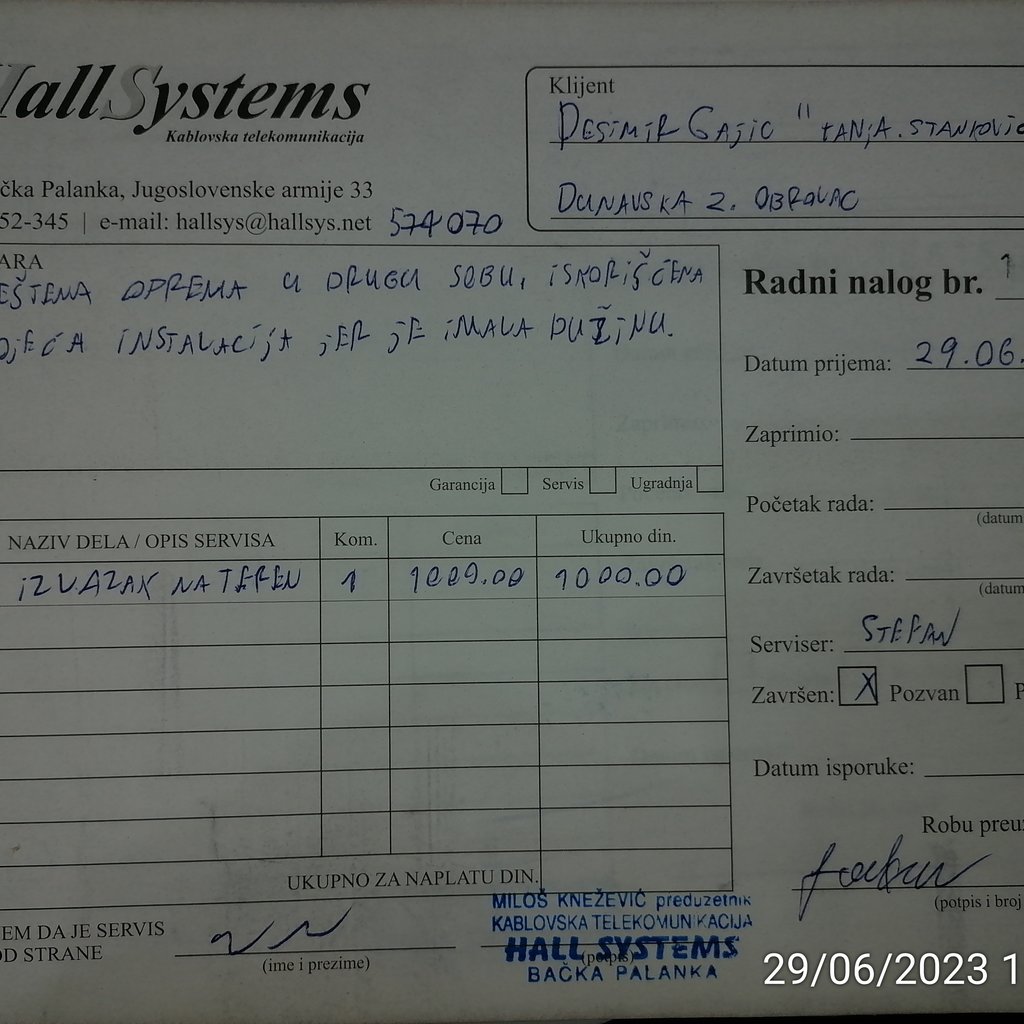 HallSystems
Kablovska telekomunikacija
čka Palanka, Jugoslovenske armije 33
52-345 | e-mail: hallsys@hallsys.net 574070
Klijent
DESIMIR GAJIC " TANJA. STANKOVIC
DUNAVSKA 2. OBROVAC
ARA
EŠTENA OPREMA U DRUGU SOBU, ISKORIŠĆENA
OJEĆA INSTALACIJA JER JE IMALA DUŽINU.
Garancija Servis Ugradnja
Radni nalog br. 1
Datum prijema: 29.06.
Zaprimio:
Početak rada:
(datum
Završetak rada:
(datum
Serviser: STEFAN
Završen: X Pozvan P
Datum isporuke:
Robu preuz
(potpis i broj
NAZIV DELA / OPIS SERVISA Kom. Cena Ukupno din.
IZLAZAK NA TEREN 1 1000.00 1000.00
UKUPNO ZA NAPLATU DIN.
EM DA JE SERVIS
OD STRANE
(ime i prezime)
(potpis)
MILOŠ KNEŽEVIĆ preduzetnik
KABLOVSKA TELEKOMUNIKACIJA
HALL SYSTEMS
BAČKA PALANKA
29/06/2023 1